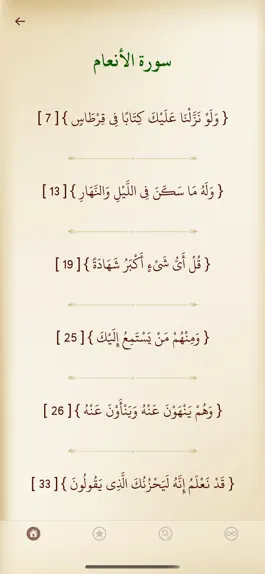 سورة الأنعام
{ وَلَوْ نَزَّلْنَا عَلَيْكَ كِتَابًا فِى قِرْطَاسٍ } [ 7 ]
{ وَلَهُ مَا سَكَنَ فِى اللَّيْلِ وَالنَّهَارِ } [ 13 ]
{ قُلْ أَىُّ شَىْءٍ أَكْبَرُ شَهَادَةً } [ 19 ]
{ وَمِنْهُمْ مَنْ يَسْتَمِعُ إِلَيْكَ } [ 25 ]
{ وَهُمْ يَنْهَوْنَ عَنْهُ وَيَنْأَوْنَ عَنْهُ } [ 26 ]
{ قَدْ نَعْلَمُ إِنَّهُ لَيَحْزُنُكَ الَّذِى يَقُولُونَ } [ 33 ]